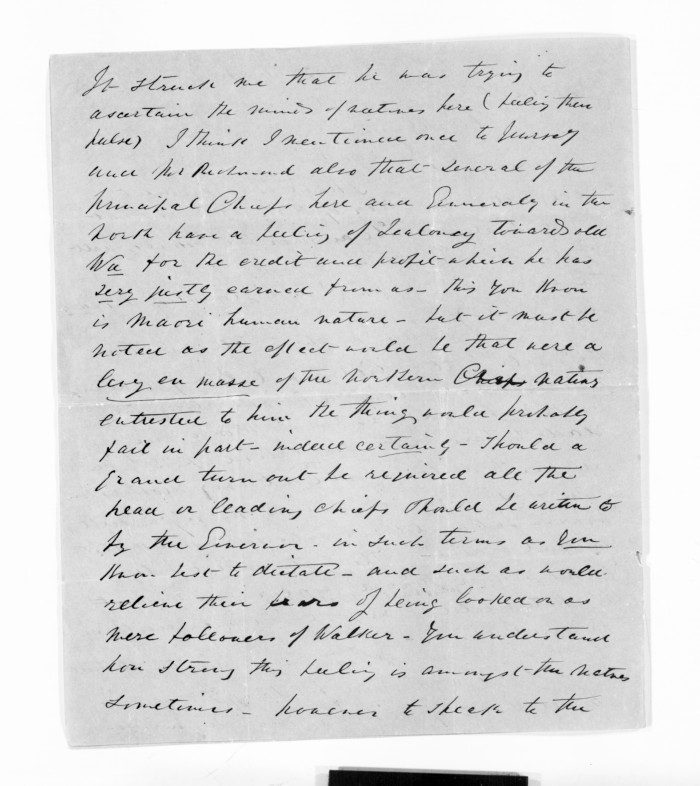 It struck me that he was trying to
ascertain the minds of natives here (feeling their
pulse) I think I mentioned once to
and Mr Richmond also that several of the
principal Chiefs here and Generally in the
North have a feeling of Jealousy towards old
Wa for the credit and profit which he has
very justly earned from us - this You Know
is Maori human nature - but it must be
noted as the effect would be that were a
levy en masse of the Northern Chiefs natives
entrusted to him the thing would probably
fail in part - indeed certainly - Should a
grand turn out be required all the
head or leading chiefs should be written to
by the Governor - in such terms as You
Know best to dictate - and such as would
relieve their fears of being looked on as
mere followers of Walker - You understand
how strong this feeling is amongst the Natives
sometimes - however to speak to the